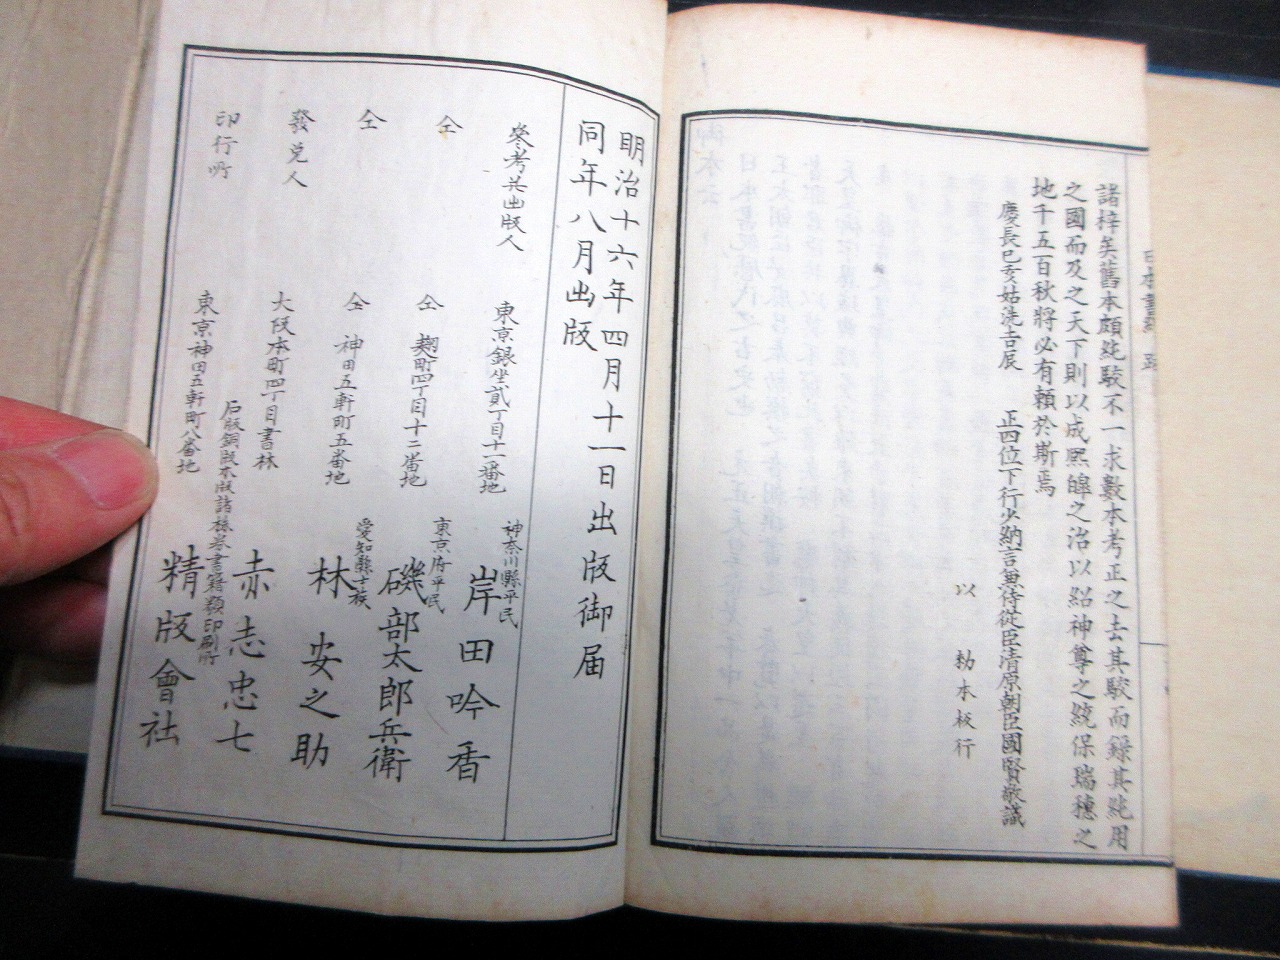 諸梓矣舊本頗純駁不一求數本考正之去其駁而錄其純用
之國而及之天下則以成熙皡之治以紹神尊之統保瑞穗之
地千五百秋將必有頼於斯焉
慶長己亥姑洗吉辰　正四位下行少納言兼侍從臣清原朝臣國賢敬識
以　勅本板行
明治十六年四月十一日出版御届
同年八月出版
參考并出版人　東京銀坐貳丁目十一番地　神奈川縣平民　岸田吟香
仝　仝　麹町四丁目十二番地　東京府平民　磯部太郎兵衛
仝　仝　神田五軒町五番地　愛知縣士族　林安之助
發兌人　大阪本町四丁目書林　赤志忠七
石版銅版木版諸株券書籍類印刷所
印行所　東京神田五軒町八番地　精版會社